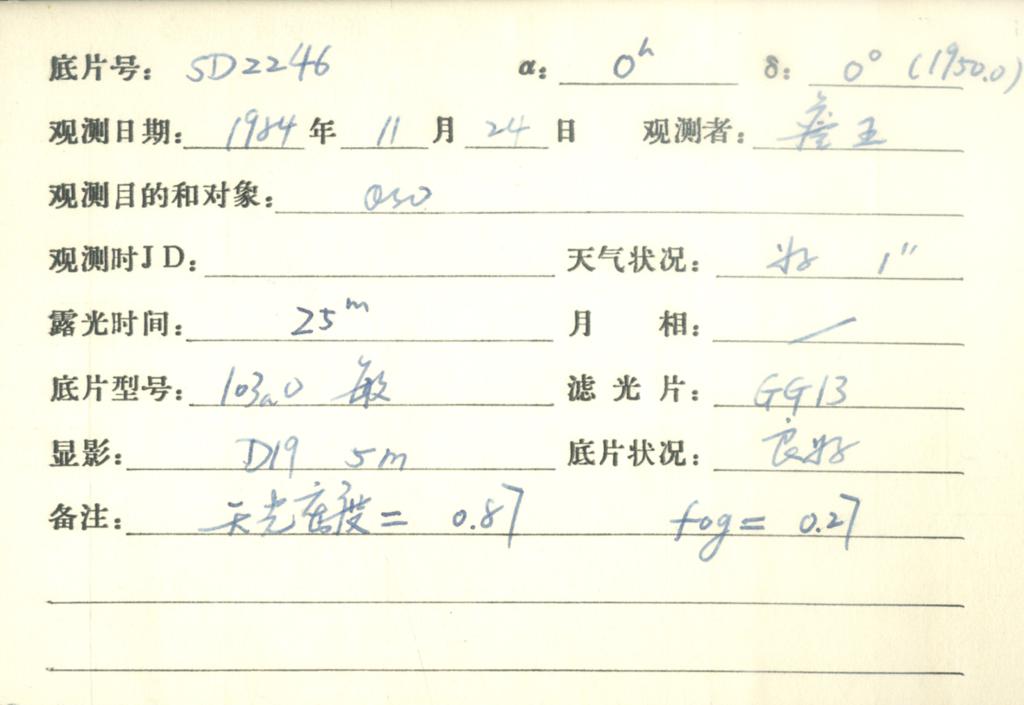 底片号: SD2246 α: 0h δ: 0° (1950.0)
观测日期: 1984 年 11 月 24 日 观测者: 王
观测目的和对象: QSO
观测时JD: 天气状况: 好 1"
露光时间: 25m 月 相: ／
底片型号: 103aO 敏 滤光片: GG13
显影: D19 5m 底片状况: 良好
备注: 天光密度= 0.87 fog= 0.27